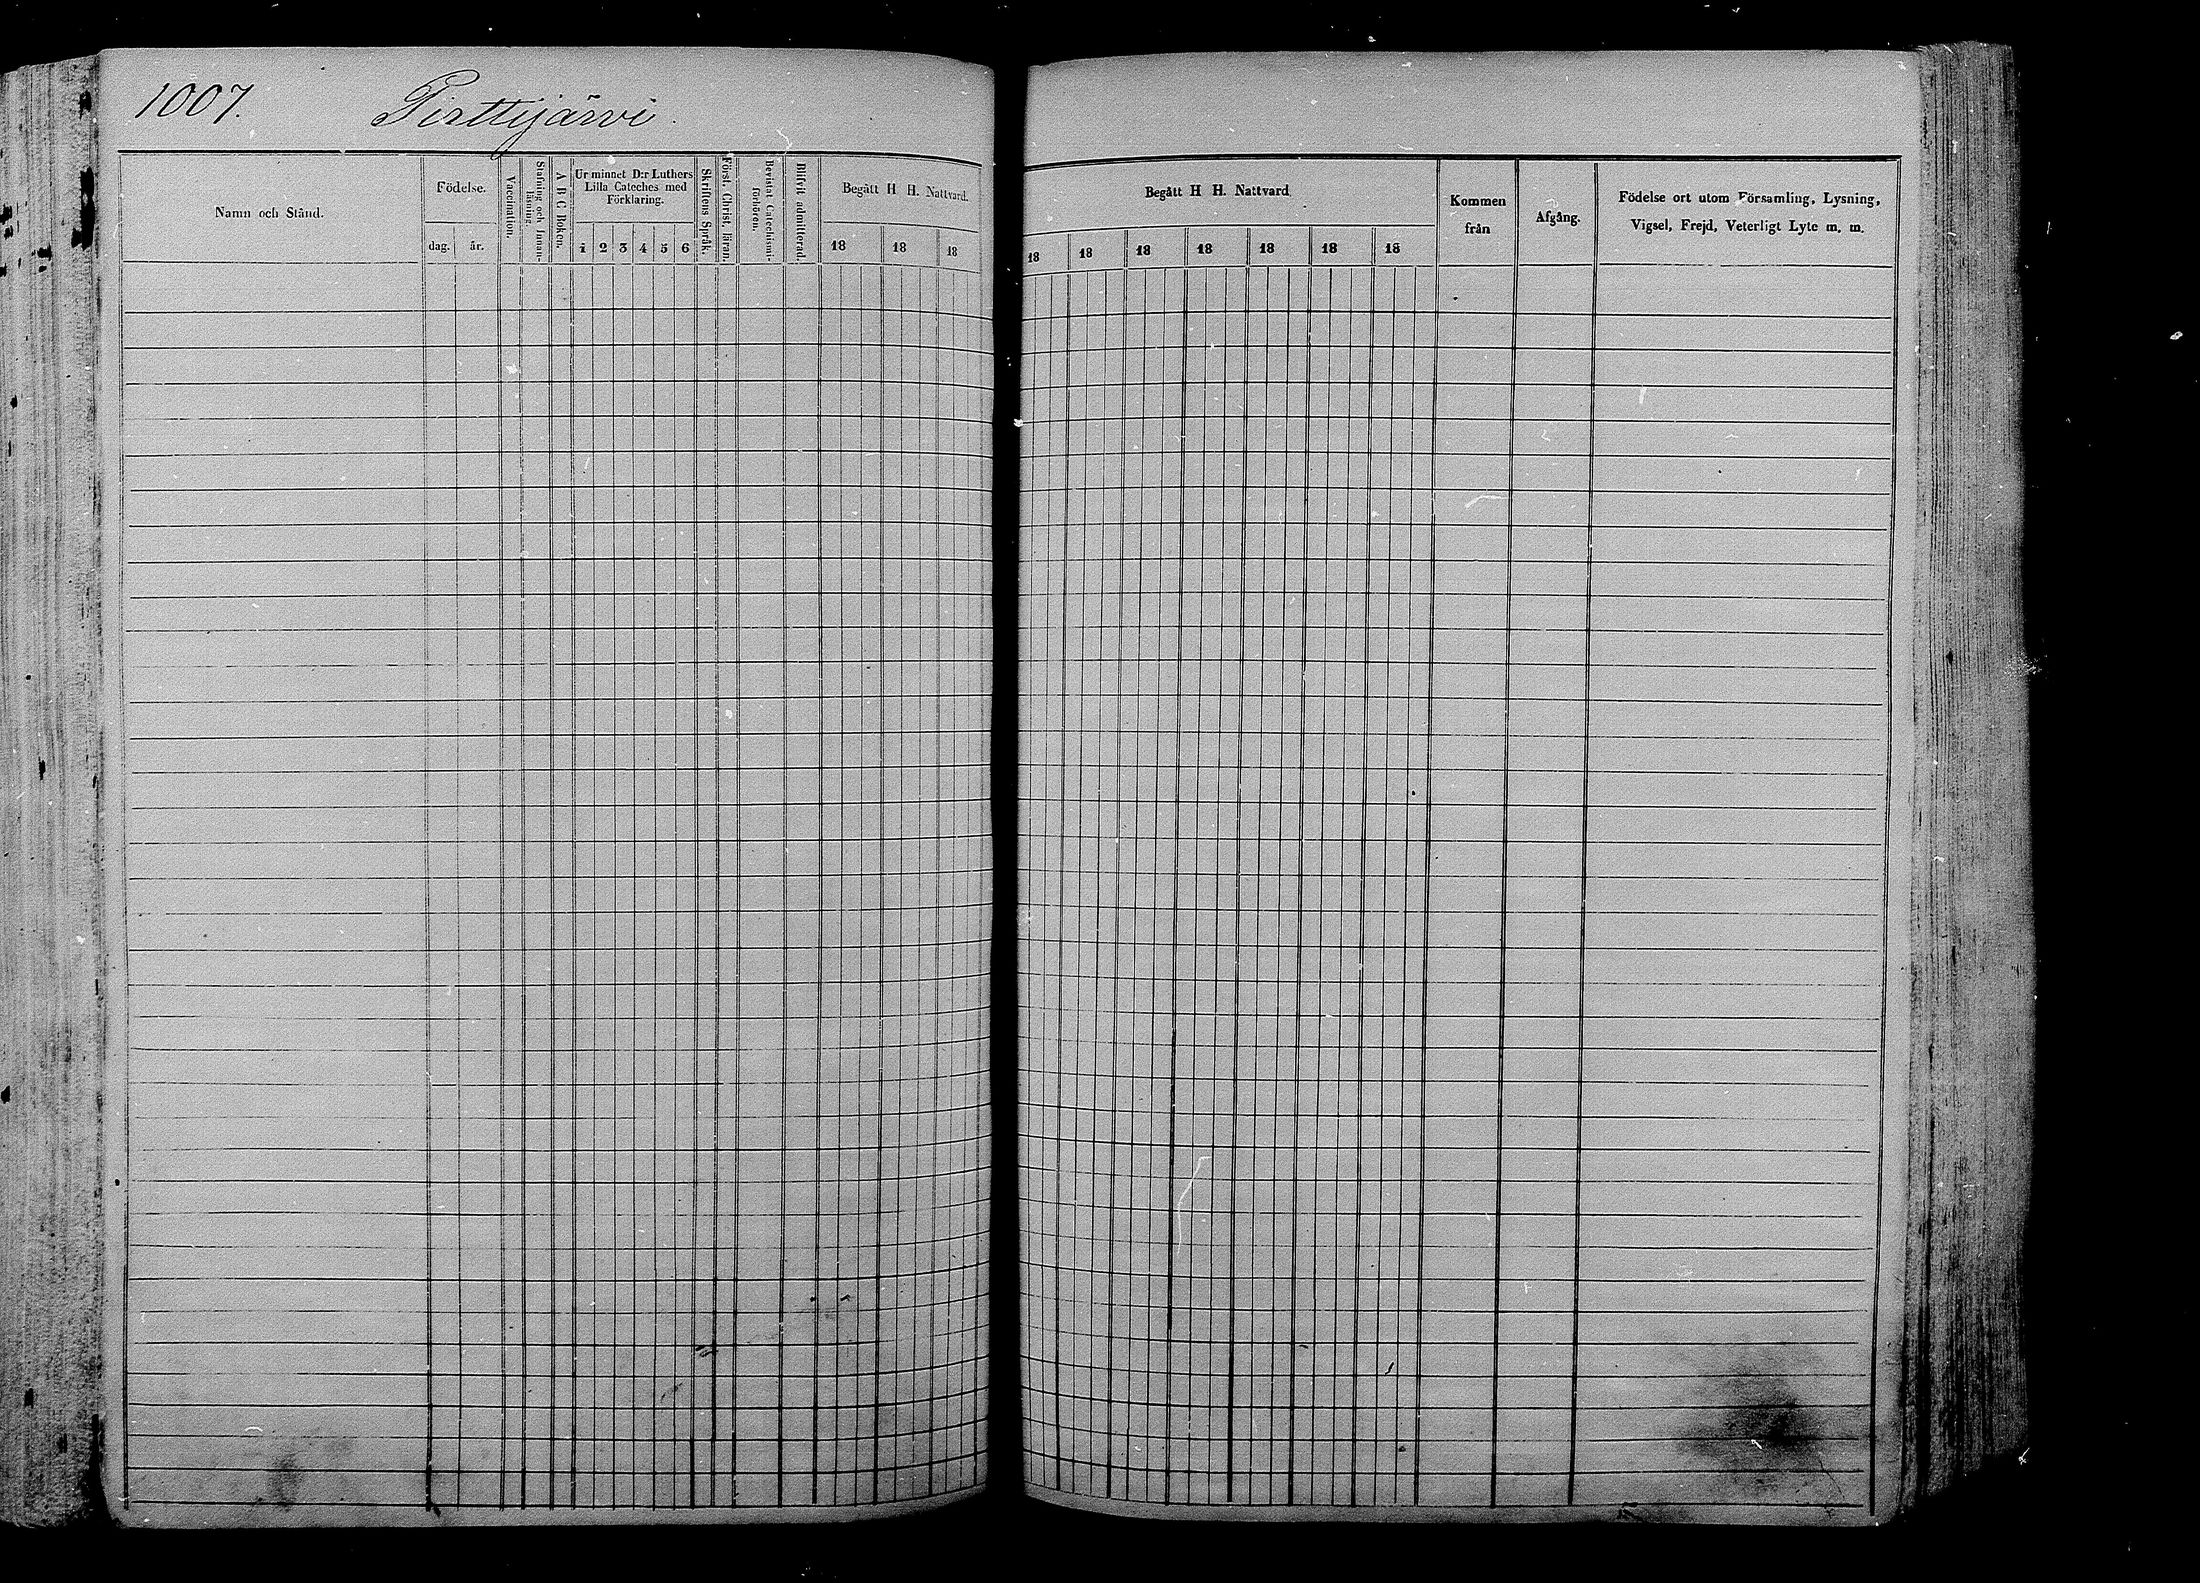 1007. Pirttijärvi.
Namn och Stånd.
Födelse.
dag. år.
Vaccination.
Stafning och Innan-
läsning.
A B C Boken.
Ur minnet D:r Luthers
Lilla Cateches med
Förklaring.
1 2 3 4 5 6
Skriftens Språk.
Först. Christ. läran.
Bevistat Catechismi-
förhören.
Blifvit admitterad.
Begått H H. Nattvard.
18 18 18
Begått H H. Nattvard
18 18 18 18 18 18 18
Kommen
från
Afgång.
Födelse ort utom Församling, Lysning,
Vigsel, Frejd, Veterligt Lyte m. m.